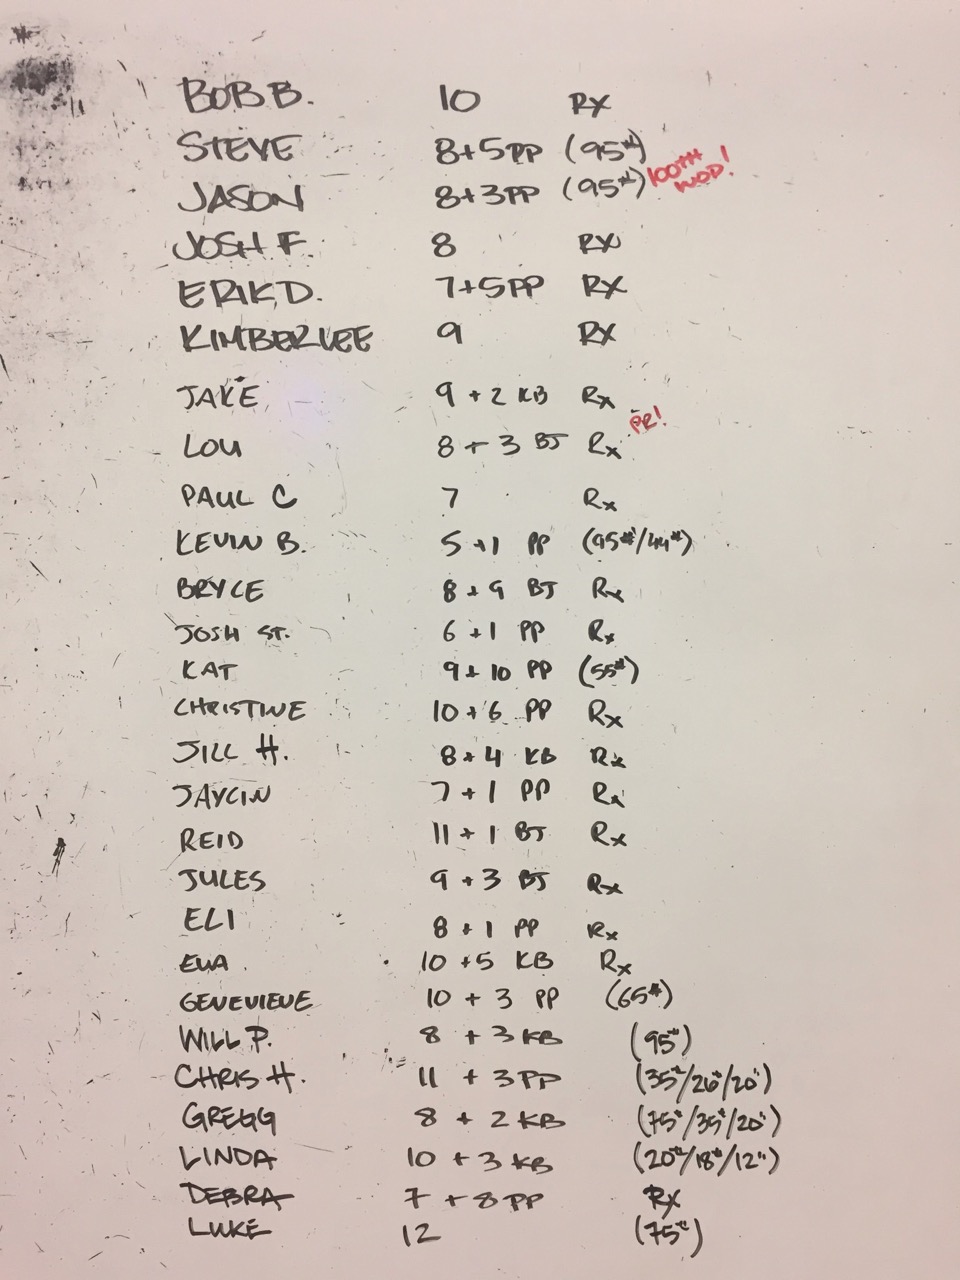 BOB B. 10 Rx
STEVE 8+5PP (95#)
JASON 8+3PP (95#) 100TH WOD!
JOSH F. 8 RX
ERIK D. 7+5PP RX
KIMBERLEE 9 RX
JAKE 9 + 2 KB Rx
LOU 8 + 3 BJ Rx PR!
PAUL C 7 Rx
KEVIN B. 5 +1 PP (95#/44#)
BRYCE 8 + 9 BJ Rx
JOSH ST. 6 +1 PP Rx
KAT 9 + 10 PP (55#)
CHRISTINE 10 + 6 PP Rx
JILL H. 8 + 4 KB Rx
JAYCIN 7 + 1 PP Rx
REID 11 + 1 BJ Rx
JULES 9 + 3 BJ Rx
ELI 8 + 1 PP Rx
EVA 10 +5 KB Rx
GENEVIEVE 10 + 3 PP (65#)
WILL P. 8 + 3 KB (95#)
CHRIS H. 11 + 3PP (35#/26#/20")
GREGG 8 + 2 KB (75#/35#/20")
LINDA 10 + 3 KB (20#/18#/12")
DEBRA 7 + 8 PP RX
LUKE 12 (75#)